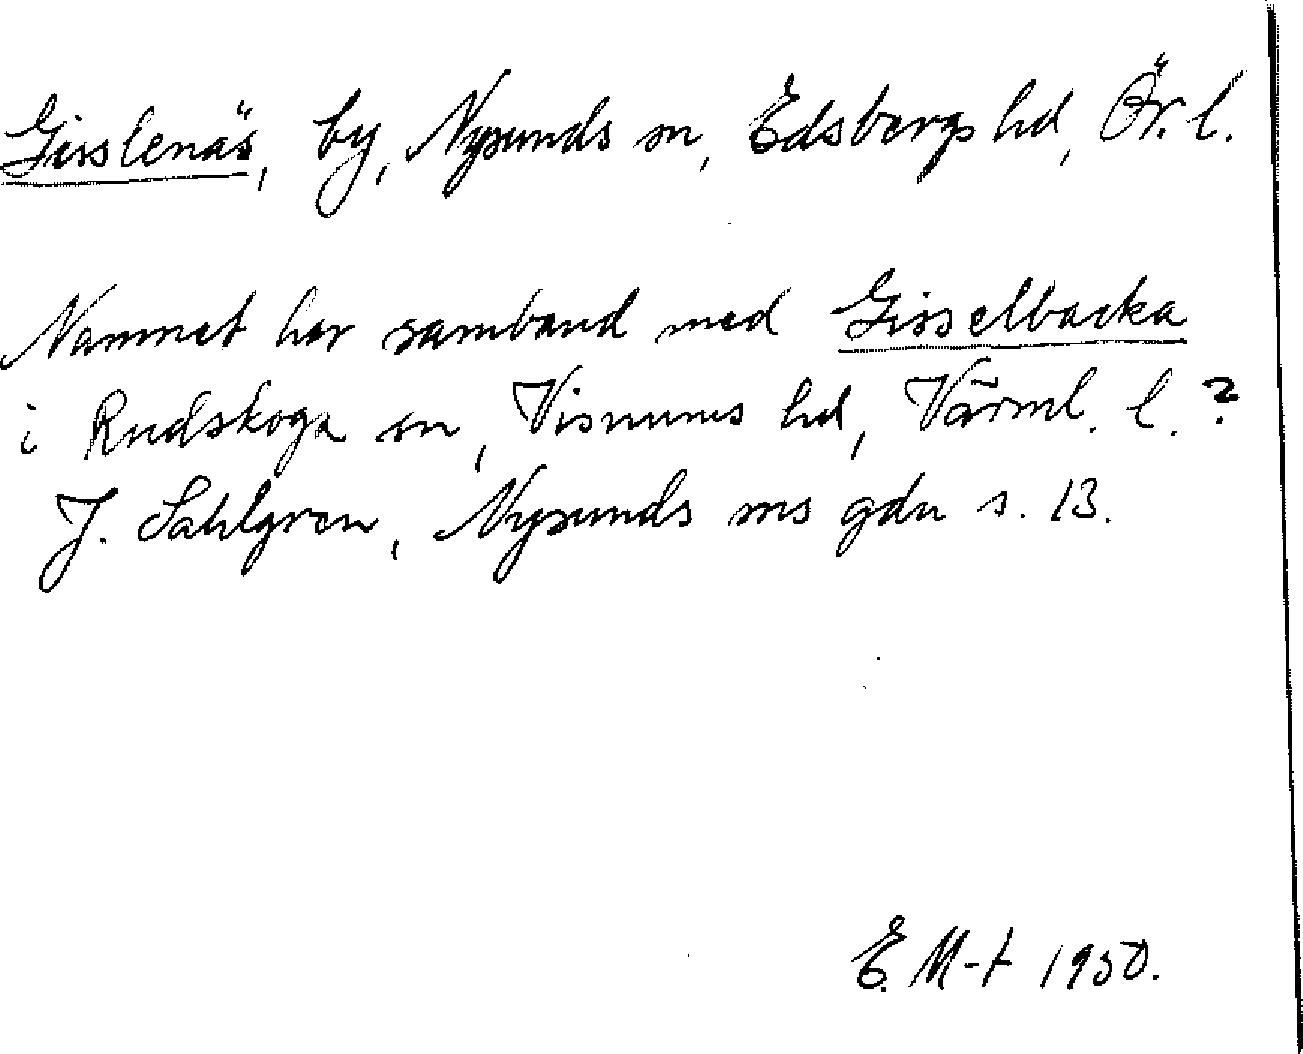 Gisslenäs, by, Nysunds sn, Edsbergs hd, Ör. l.
Namnet har samband med Gisselbacka
i Rudskoga sn, Visnums hd, Värml. l.?
J. Sahlgren, Nysunds sns gdn s. 13.
E. M-t 1950.